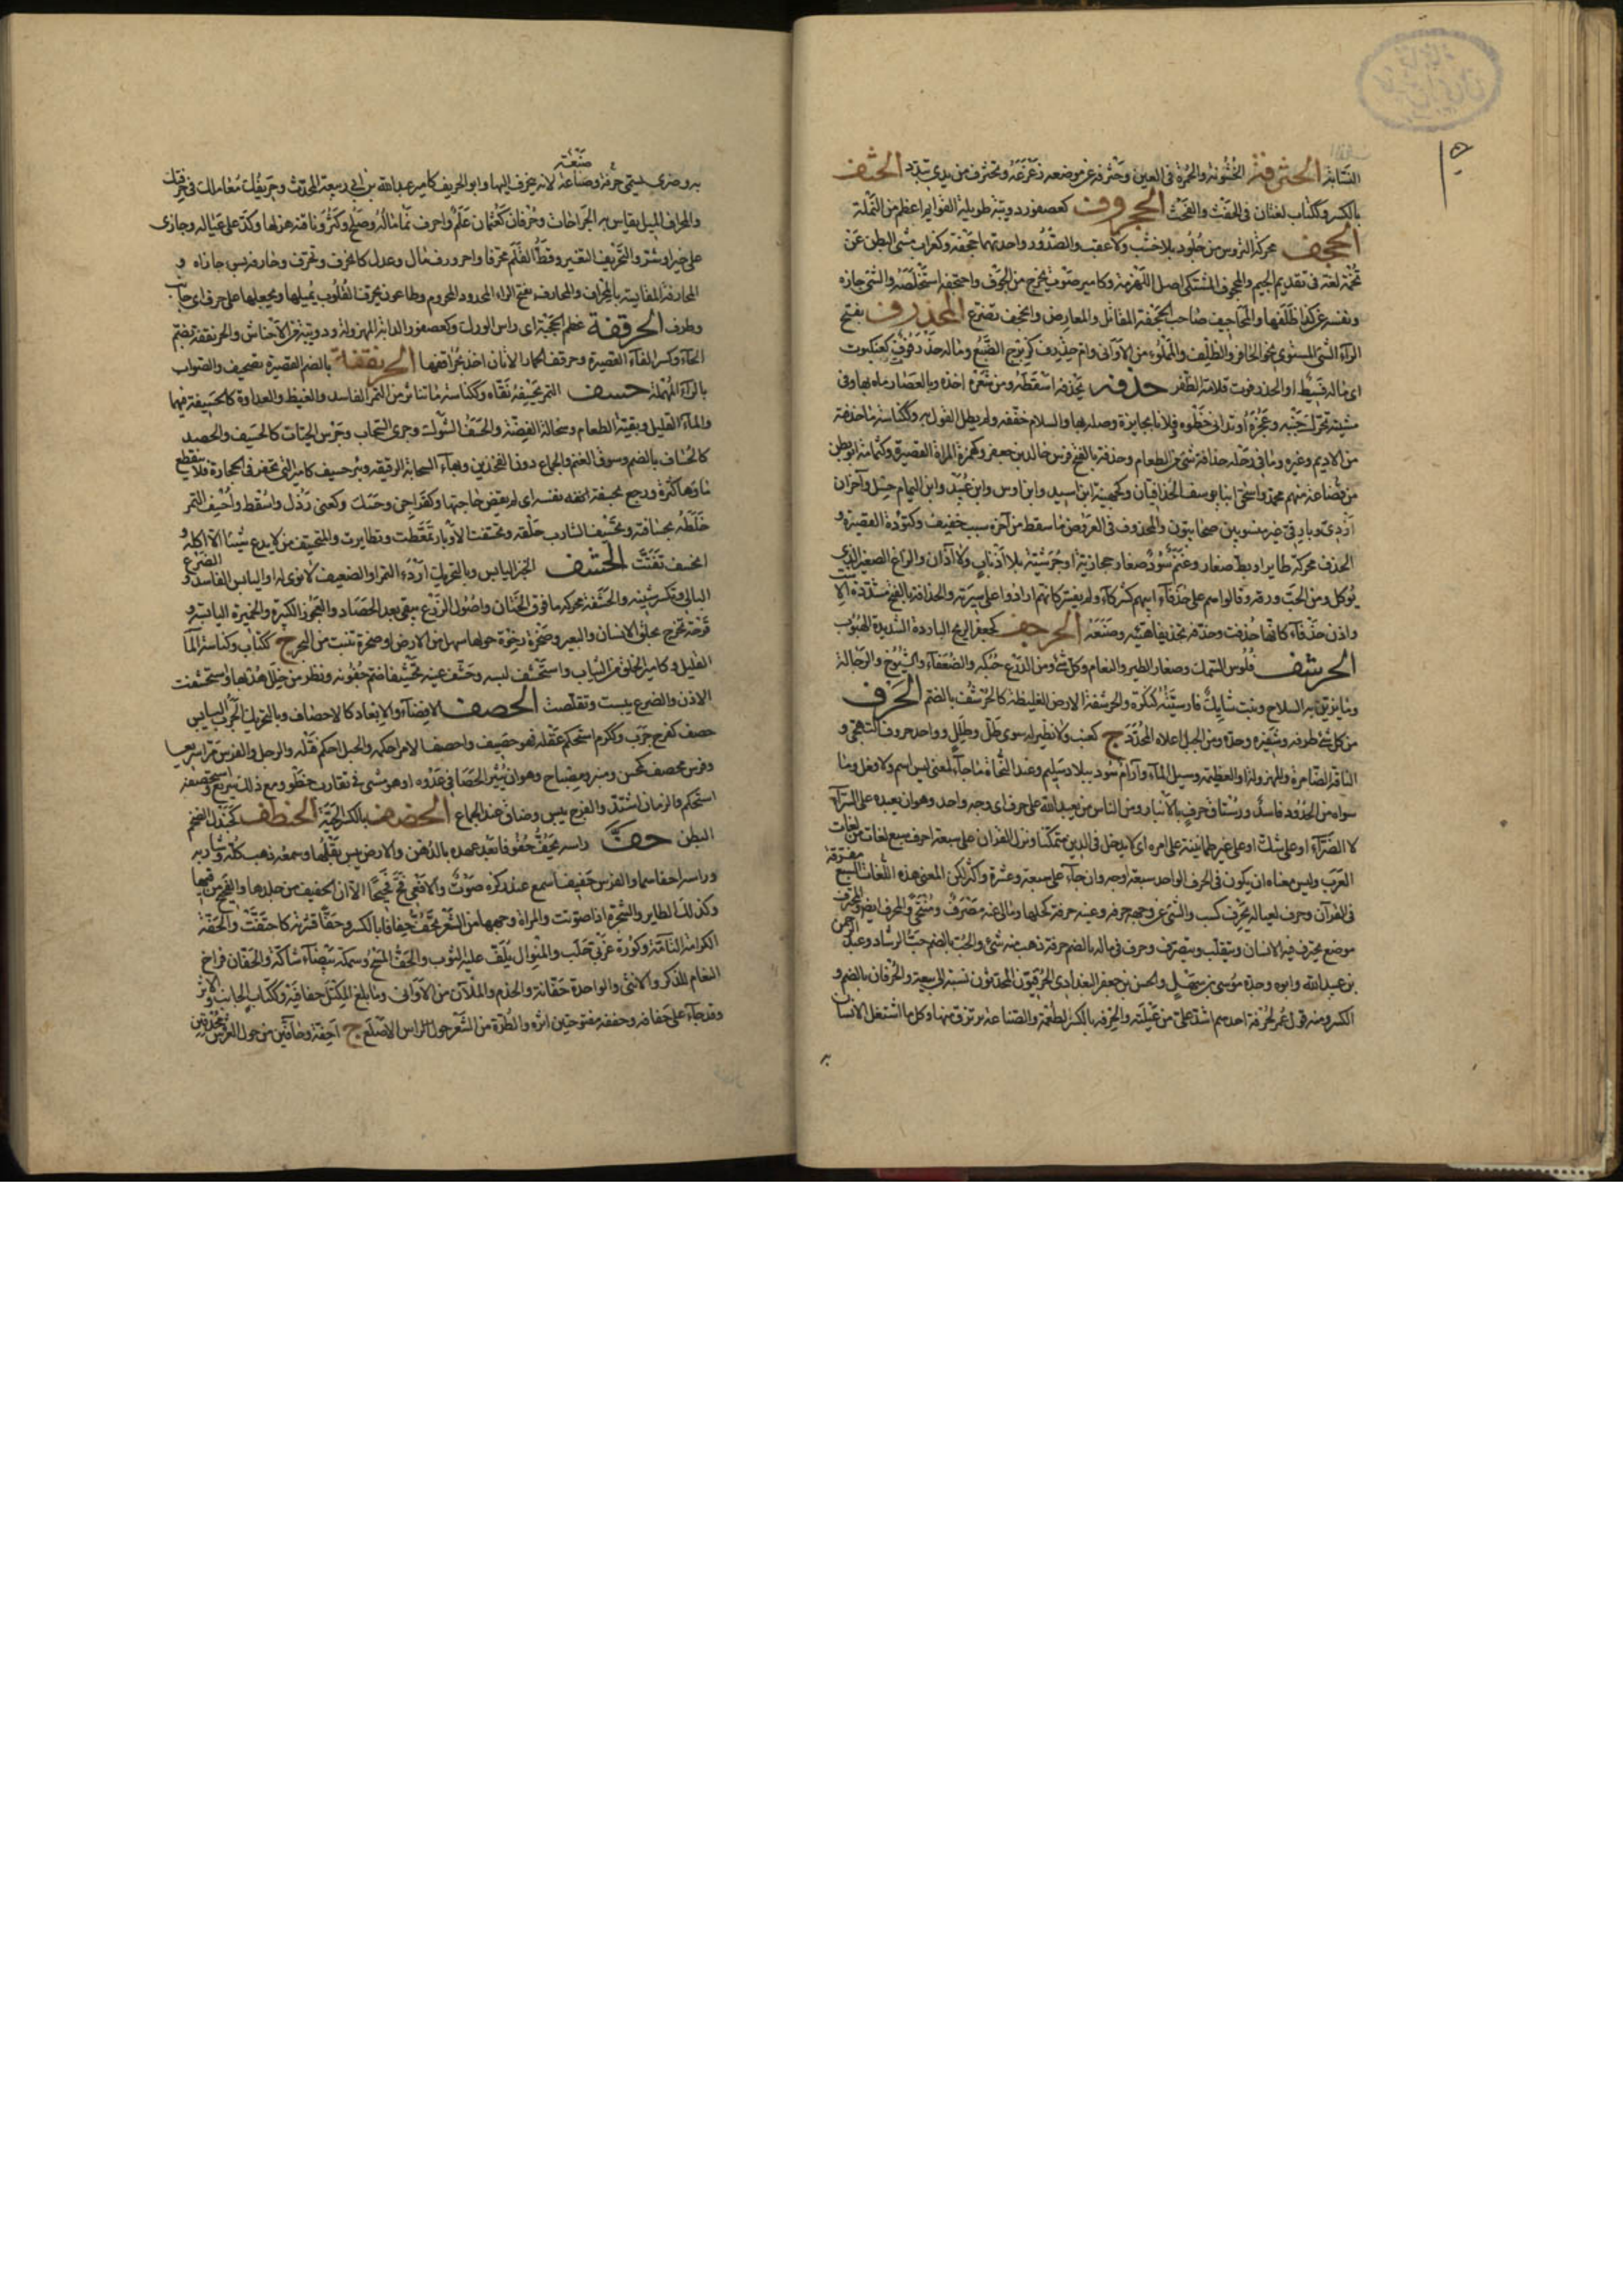 السابغة الحثرفة الخشونة والحمرة في العين وحثرفه عن موضعه زعزعه وتحثرف من يدي تبدد الحثف
بالكسر وككتاب لغتان في الحفث والفحث الحجروف كعصفور دويبة طويلة القوايم اعظم من النملة
الحجف محركة التروس من جلود بلا خشب ولا عقب والصدور واحدتهما حجفة وكغراب مشي البطن عن
تخمة لغة في تقديم الجيم والمحجوف المشتكي اصل اللهزمة وكامير صوت يخرج من الجوف واحتجفه استخلصه والشي حازه
ونفسه عن كذا ظلفها والمحاجف صاحب الحجفة المقاتل والمعارض وانحجف تضرع المحذرف بفتح
الراء الشي المستوي نحو الحافر والظلف والمملوء من الاواني وام حذرف كزبرج الضبع وماله حذرفوت كعنكبوت
اي ماله قسيط او الحذرفوت قلامة الظفر حذفه يحذفه اسقطه ومن شعره اخذه وبالعصا رماه بها وفي
مشيته حرك جنبه وعجزه او تداني خطوه وفلانا بجايزة وصله بها والسلام خففه ولم يطل القول به وككناسة ما حذفته
من الاديم وغيره وما في رحله حذافة شي من الطعام وحذفة بالفتح فرس خالد بن جعفر وكهمزة المراة القصيرة وكثمامة ابو بطن
من قضاعة منهم محمد واسحق ابنا يوسف الحذافيان وكجهينة ابن اسيد وابن اوس وابن عبيد وابن اليمان حسل وآخران
ازدي وبارقي غير منسوبين صحابيون والمحذوف في العروض ما سقط من آخره سبب خفيف وكتؤدة القصيرة و
الحذف محركة طاير او بط صغار وغنم سود صغار حجازية او جرشية بلا اذناب ولا آذان والزاغ الصغير الذي
يؤكل ومن الحب ورقه وقالوا هم على حذفاء ابيهم كشركاء ولم يفسر كانهم ارادوا على سيرته والحذافة بالفتح مشددة الاست
واذن حذفاء كانها حذفت وحذفه تحذيفا هيئه وصنعه الحرجف كجعفر الريح الباردة الشديدة الهبوب
الحرشف فلوس السمك وصغار الطير والنعام وكل شي ومن الدرع حبكه والضعفاء والشيوخ والرجالة
وما يزين به السلاح ونبت شايك فارسيته كنكره والحرشفة الارض الغليظة كالحرشف بالضم الحرف
من كل شي طرفه وشفيره وحده ومن الجبل اعلاه المحدد ج كعنب ولا نظير له سوى طل وطلل وواحد حروف التهجي و
الناقة الضامرة والمهزولة او العظيمة ومسيل الماء وآرام سود ببلاد سليم وعند النحاة ما جاء لمعنى ليس باسم ولا فعل وما
سواه من الحدود فاسد ورستاق حرف بالانبار ومن الناس من يعبد الله على حرف اي وجه واحد وهو ان يعبده على السراء
لا الضراء او على شك او على غير طمانينة على امره اي لا يدخل في الدين متمكنا ونزل القران على سبعة احرف سبع لغات من لغات
العرب وليس معناه ان يكون في الحرف الواحد سبعة اوجه وان جاء على سبعة وعشرة واكثر لكن المعنى هذه اللغات السبع مفرقة
في القرآن وحرف لعياله يحرف كسب والشي عن وجهه حرفه وعينه حرفة كحلها ومالي عنه مصرف ومتنحى والمحرف ايضا والمحترف
موضع يحترف فيه الانسان ويتقلب ويتصرف وحرف في ماله بالضم حرفة ذهب منه شي والحرف بالضم حب الرشاد وعبد الرحمن
بن عبد الله وابوه وجده موسى بن سهل والحسن بن جعفر البغدادي الحرفيون المحدثون نسبة الى بيعه والحرفان بالضم و
الكسر ومنه قول عمر لحرفة احدهم اشد علي من عيلته والحرفة بالكسر الطعمة والصناعة يرتزق منها وكل ما اشتغل الانسان
به
به وضري يسمى حرفة وصناعة لانه ينحرف اليها وابو الحريف كامير عبد الله بن ابي ربيعة المحدث وحريفك معاملك في حرفتك
صنعة
والمحراف الميل يقاس به الجراحات وحرفان كعثمان علم واحرف نما ماله وصلح وكثر وناقته هزلها وكد على عياله وجازى
على خير او شر والتحريف التغيير وقط القلم محرفا واحرورف مال وعدل كانحرف وتحرف وحارفه بسوء جازاه و
المحارفة المقايسة بالمحراف والمحارف بفتح الراء المحدود المحروم وطاعون يحرف القلوب يميلها ويجعلها على حرف اي جانب
وطرف الحرقفة عظم الحجبة اي راس الورك وكعصفور الدابة المهزولة ودويبة من الاحناش والحرنقفة بضم
الحاء وكسر القاف القصيرة وحرقف الحمار الاتان اخذ بحراقفها الحزنقفة بالضم القصيرة تصحيف والصواب
بالراء المهملة حسف التمر يحسفه نقاه وككناسة ما تناثر من التمر الفاسد والغيظ والعداوة كالحسيفة فيهما
والماء القليل وبقية الطعام وسحالة الفضة والحسف الشوك وجري السحاب وجرس الحيات كالحسيف والحصد
كالحساف بالضم وسوق الغنم والجماع دون الفخذين وبهاء السحابة الرقيقة وبير حسيف كامير التي تحفر في الحجارة فلا ينقطع
ماؤها كثرة ورجع بحسيفة نفسه اي لم يقض حاجتها وكفرح اجن وحسك وكعني رذل واسقط واحسف التمر
خلطه بحسافته وتحسيف الشارب حلقه وتحسفت الاوبار تمعطت وتطايرت والمتحسف من لا يدع شيئا الا اكله و
انحسف تفتت الحشف الخبز اليابس وبالتحريك اردء التمر او الضعيف لا نوى له او اليابس الفاسد والضرع
البالي وتكسر شينه والحشفة محركة ما فوق الختان واصول الزرع تبقى بعد الحصاد والعجوز الكبيرة والخميرة اليابسة و
قرحة تخرج بحلق الانسان والبعير وصخرة رخوة حولها سهل من الارض او صخرة تنبت من البحر ج ككتاب وككناسة الماء
القليل وكامير الخلق من الثياب واستحشف لبسه وحشف عينه تحشيفا ضم جفونه ونظر من خلل هدبها واستحشفت
الاذن والضرع يبست وتقلصت الحصف الاقصاء والابعاد كالاحصاف وبالتحريك الجرب اليابس
حصف كفرح جرب وككرم استحكم عقله فهو حصيف واحصف الامر احكمه والحبل احكم فتله والرجل والفرس مرا سريعا
وفرس محصف كمحسن ومنبر ومصباح وهو ان يثير الحصا في عدوه او هو مشي فيه تقارب خطو ومع ذلك سريع واستحصف
استحكم والزمان اشتد والفرج يبس وضاق عند الجماع الحضف بالكسر الحية الحنطف كجندل الضخم
البطن حف راسه يحف حفوفا بعد عهده بالدهن والارض يبس بقلها وسمعه ذهب كله وشاربه
وراسه احفاهما والفرس حفيفا سمع عند ركضه صوت والافعى فح فحيحا الا ان الحفيف من جلدها والفحيح من فيها
وكذلك الطاير والشجرة اذا صوتت والمراة وجهها من الشعر تحف حفافا بالكسر وحفا قشرته كاحتفت والحفة
الكرامة التامة وكورة غربي حلب والمنوال يلف عليه الثوب والحف المنسج وسمكة بيضاء شاكة والحفان فراخ
النعام للذكر والانثى والواحدة حفانة والخدم والملآن من الاواني وما بلغ المكيل حفافيه وككتاب الجانب والاثر
وقد جاء على حفافه وحففه مفتوحتين اثره والطرة من الشعر حول الراس الاصلع ج احفة وحافين من حول العرش محدقين